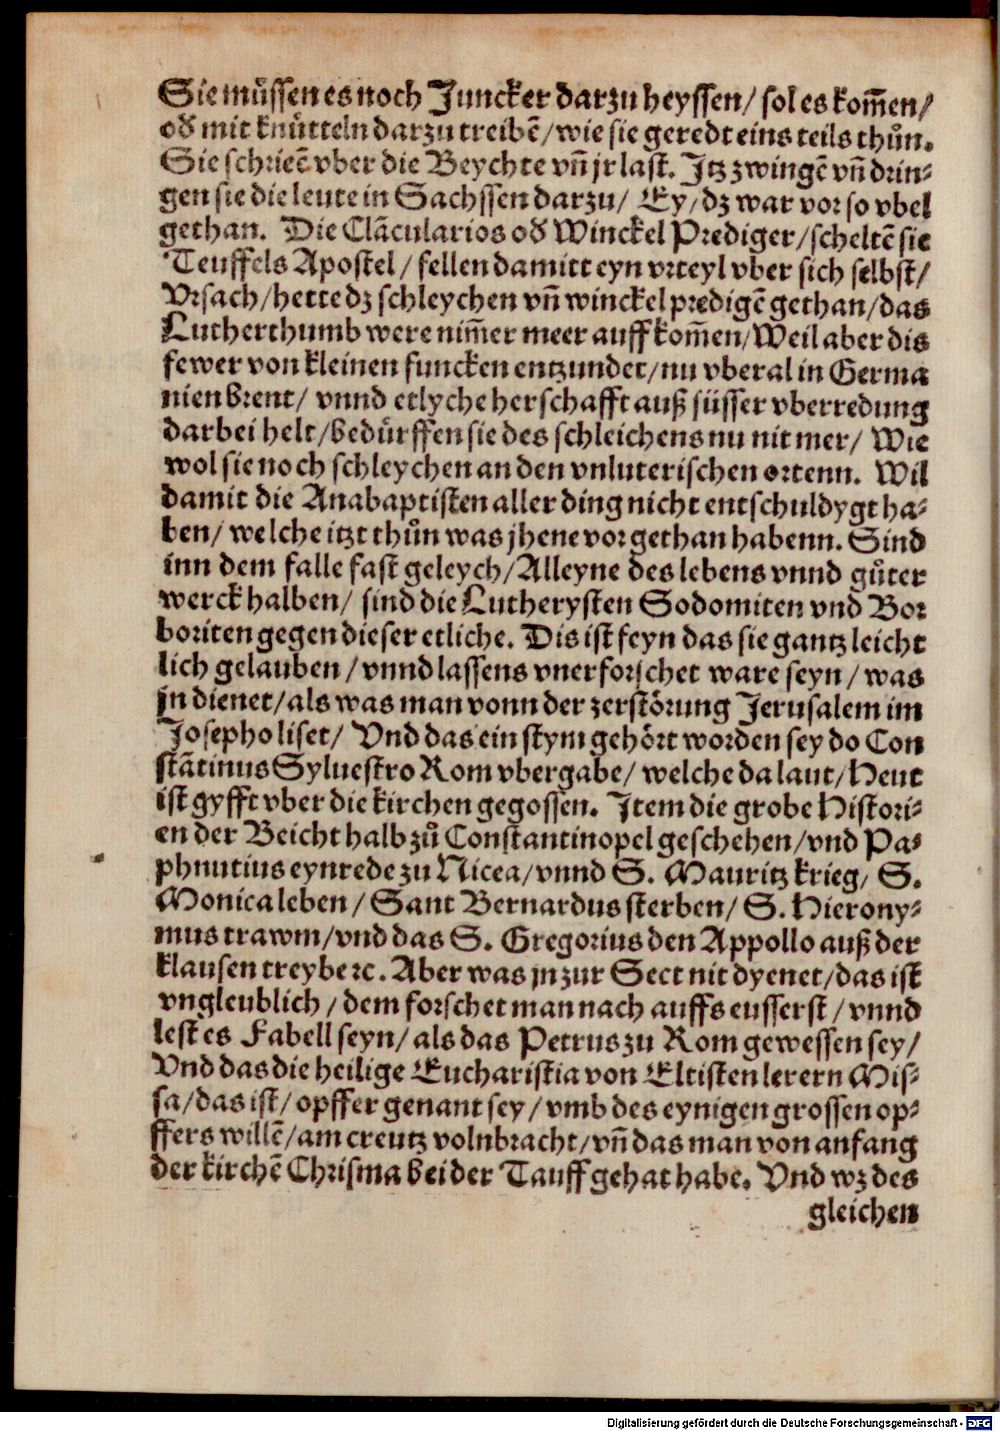 Sie muͤssen es noch Juncker darzu heyssen / sol es kom̃en /
od̛ mit knuͤtteln darzu treibẽ / wie sie geredt eins teils thůn.
Sie schrieẽ vber die Beychte vñ jr last. Jtz zwingẽ vñ drin⸗
gen sie die leute in Sachssen darzu / Ey / dz war vor so vbel
gethan. Die Clãcularios od̛ Winckel Prediger / scheltẽ sie
Teuffels Apostel / fellen damitt eyn vrteyl vber sich selbst /
Vrsach / hette dz schleychen vñ winckel predigẽ gethan / das
Lutherthumb were nim̃er meer auff kom̃en / Weil aber dis
fewer von kleinen funcken entzundet / nu vberal in Germa
nien brent / vnnd etlyche herschafft auß süsser vberredung
darbei helt / bedürffen sie des schleichens nu nit mer / Wie
wol sie noch schleychen an den vnluterischen ortenn. Wil
damit die Anabaptisten aller ding nicht entschuldygt ha⸗
ben / welche itzt thůn was jhene vor gethan habenn. Sind
inn dem falle fast geleych / Alleyne des lebens vnnd gůter
werck halben / sind die Lutherysten Sodomiten vnd Bor
boriten gegen dieser etliche. Dis ist feyn das sie gantz leicht
lich gelauben / vnnd lassens vnerforschet ware seyn / was
jn dienet / als was man vonn der zerstörung Jerusalem im
Josepho liset / Vnd das ein stym gehört worden sey do Con
stãtinus Syluestro Rom vbergabe / welche da laut / Heut
ist gyfft vber die kirchen gegossen. Jtem die grobe Histori⸗
en der Beicht halb zů Constantinopel geschehen / vnd Pa⸗
phnutius eynrede zu Nicea / vnnd S. Mauritz krieg / S.
Monica leben / Sant Bernardus sterben / S. Hierony⸗
mus trawm / vnd das S. Gregorius den Appollo auß der
klausen treybe ꝛc. Aber was jn zur Sect nit dyenet / das ist
vngleublich / dem forschet man nach auffs eusserst / vnnd
lest es Fabell seyn / als das Petrus zu Rom gewessen sey /
Vnd das die heilige Eucharistia von Eltisten lerern Mis⸗
sa / das ist / opffer genant sey / vmb des eynigen grossen op⸗
ffers willẽ / am creutz volnbracht / vñ das man von anfang
der kirchẽ Chrisma bei der Tauff gehat habe. Vnd wz des
gleichen
Digitalisierung gefördert durch die Deutsche Forschungsgemeinschaft - DFG